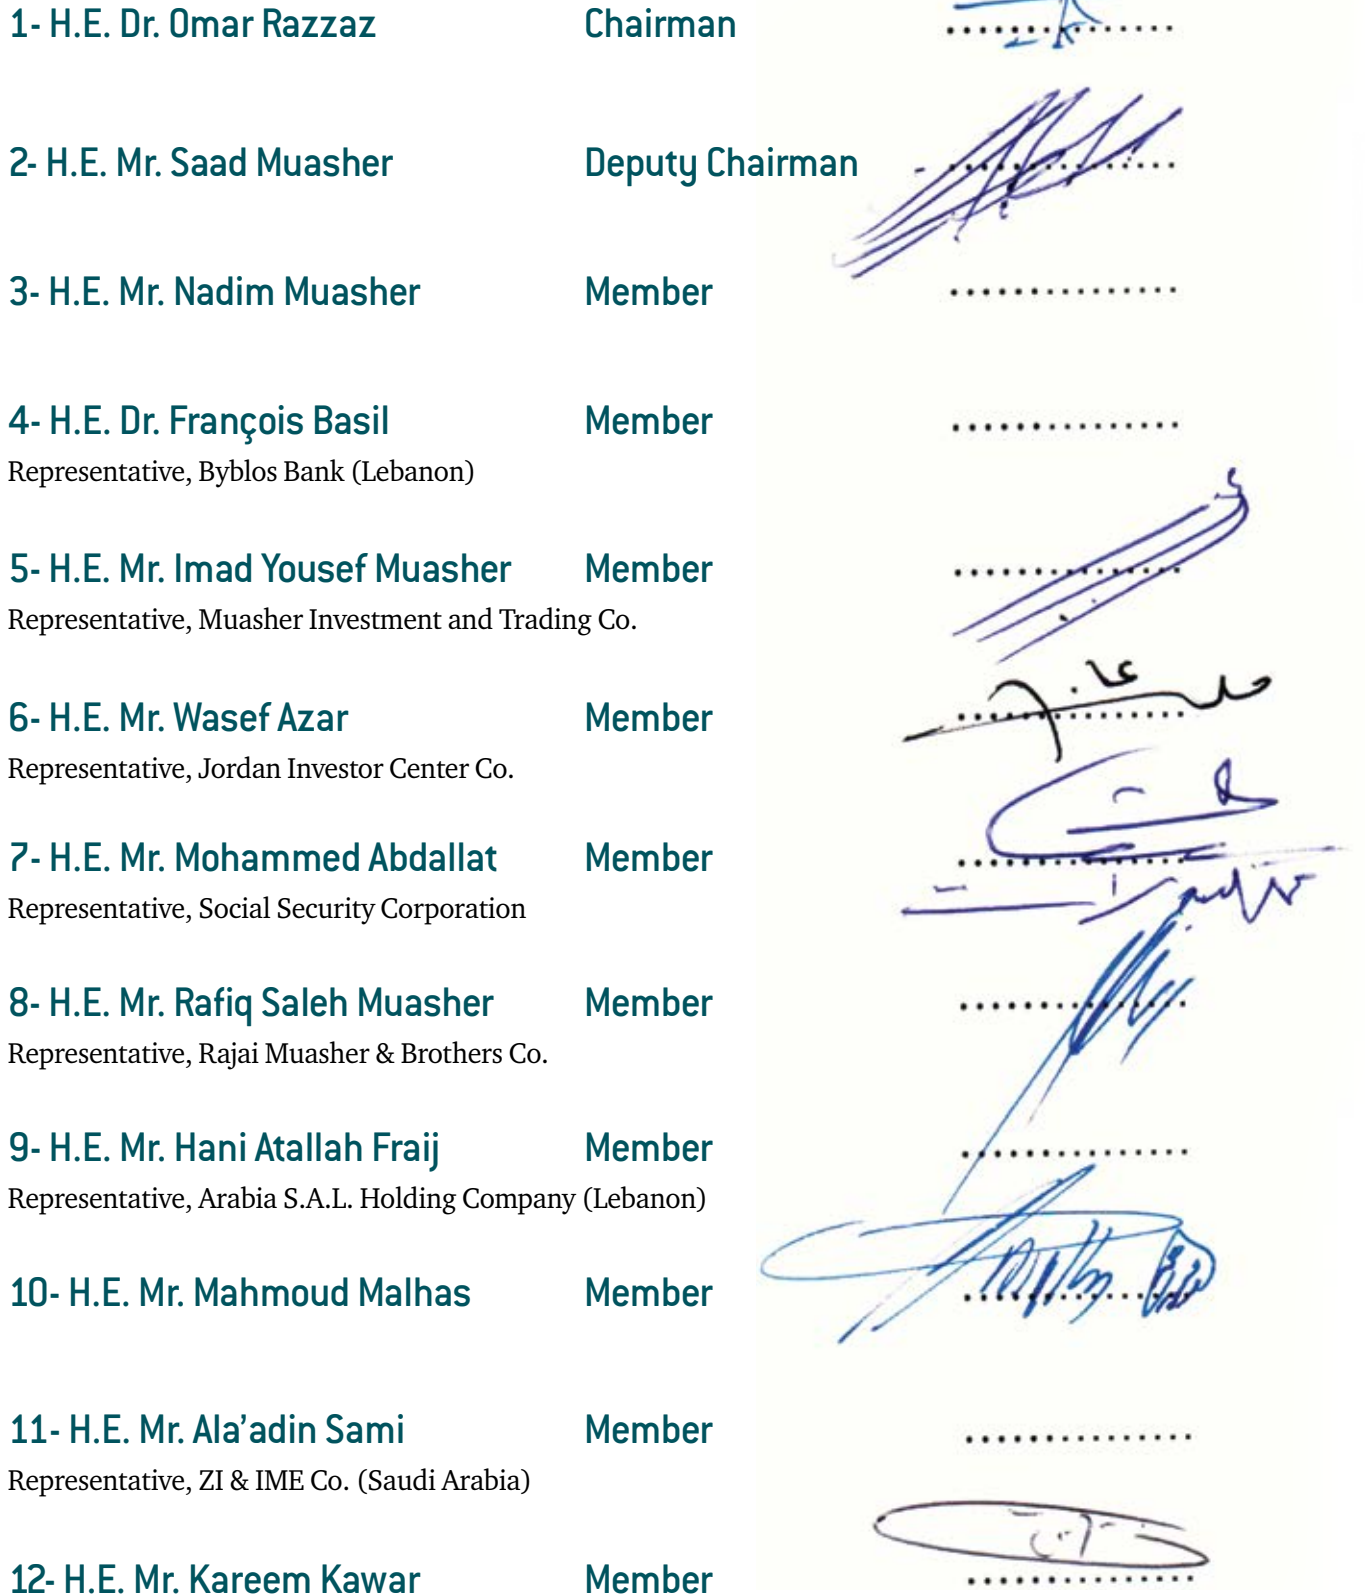 1- H.E. Dr. Omar Razzaz Chairman ...............
2- H.E. Mr. Saad Muasher Deputy Chairman ...............
3- H.E. Mr. Nadim Muasher Member ...............
4- H.E. Dr. François Basil Member ...............
Representative, Byblos Bank (Lebanon)
5- H.E. Mr. Imad Yousef Muasher Member ...............
Representative, Muasher Investment and Trading Co.
6- H.E. Mr. Wasef Azar Member ...............
Representative, Jordan Investor Center Co.
7- H.E. Mr. Mohammed Abdallat Member ...............
Representative, Social Security Corporation
8- H.E. Mr. Rafiq Saleh Muasher Member ...............
Representative, Rajai Muasher & Brothers Co.
9- H.E. Mr. Hani Atallah Fraij Member ...............
Representative, Arabia S.A.L. Holding Company (Lebanon)
10- H.E. Mr. Mahmoud Malhas Member ...............
11- H.E. Mr. Ala’adin Sami Member ...............
Representative, ZI & IME Co. (Saudi Arabia)
12- H.E. Mr. Kareem Kawar Member ...............